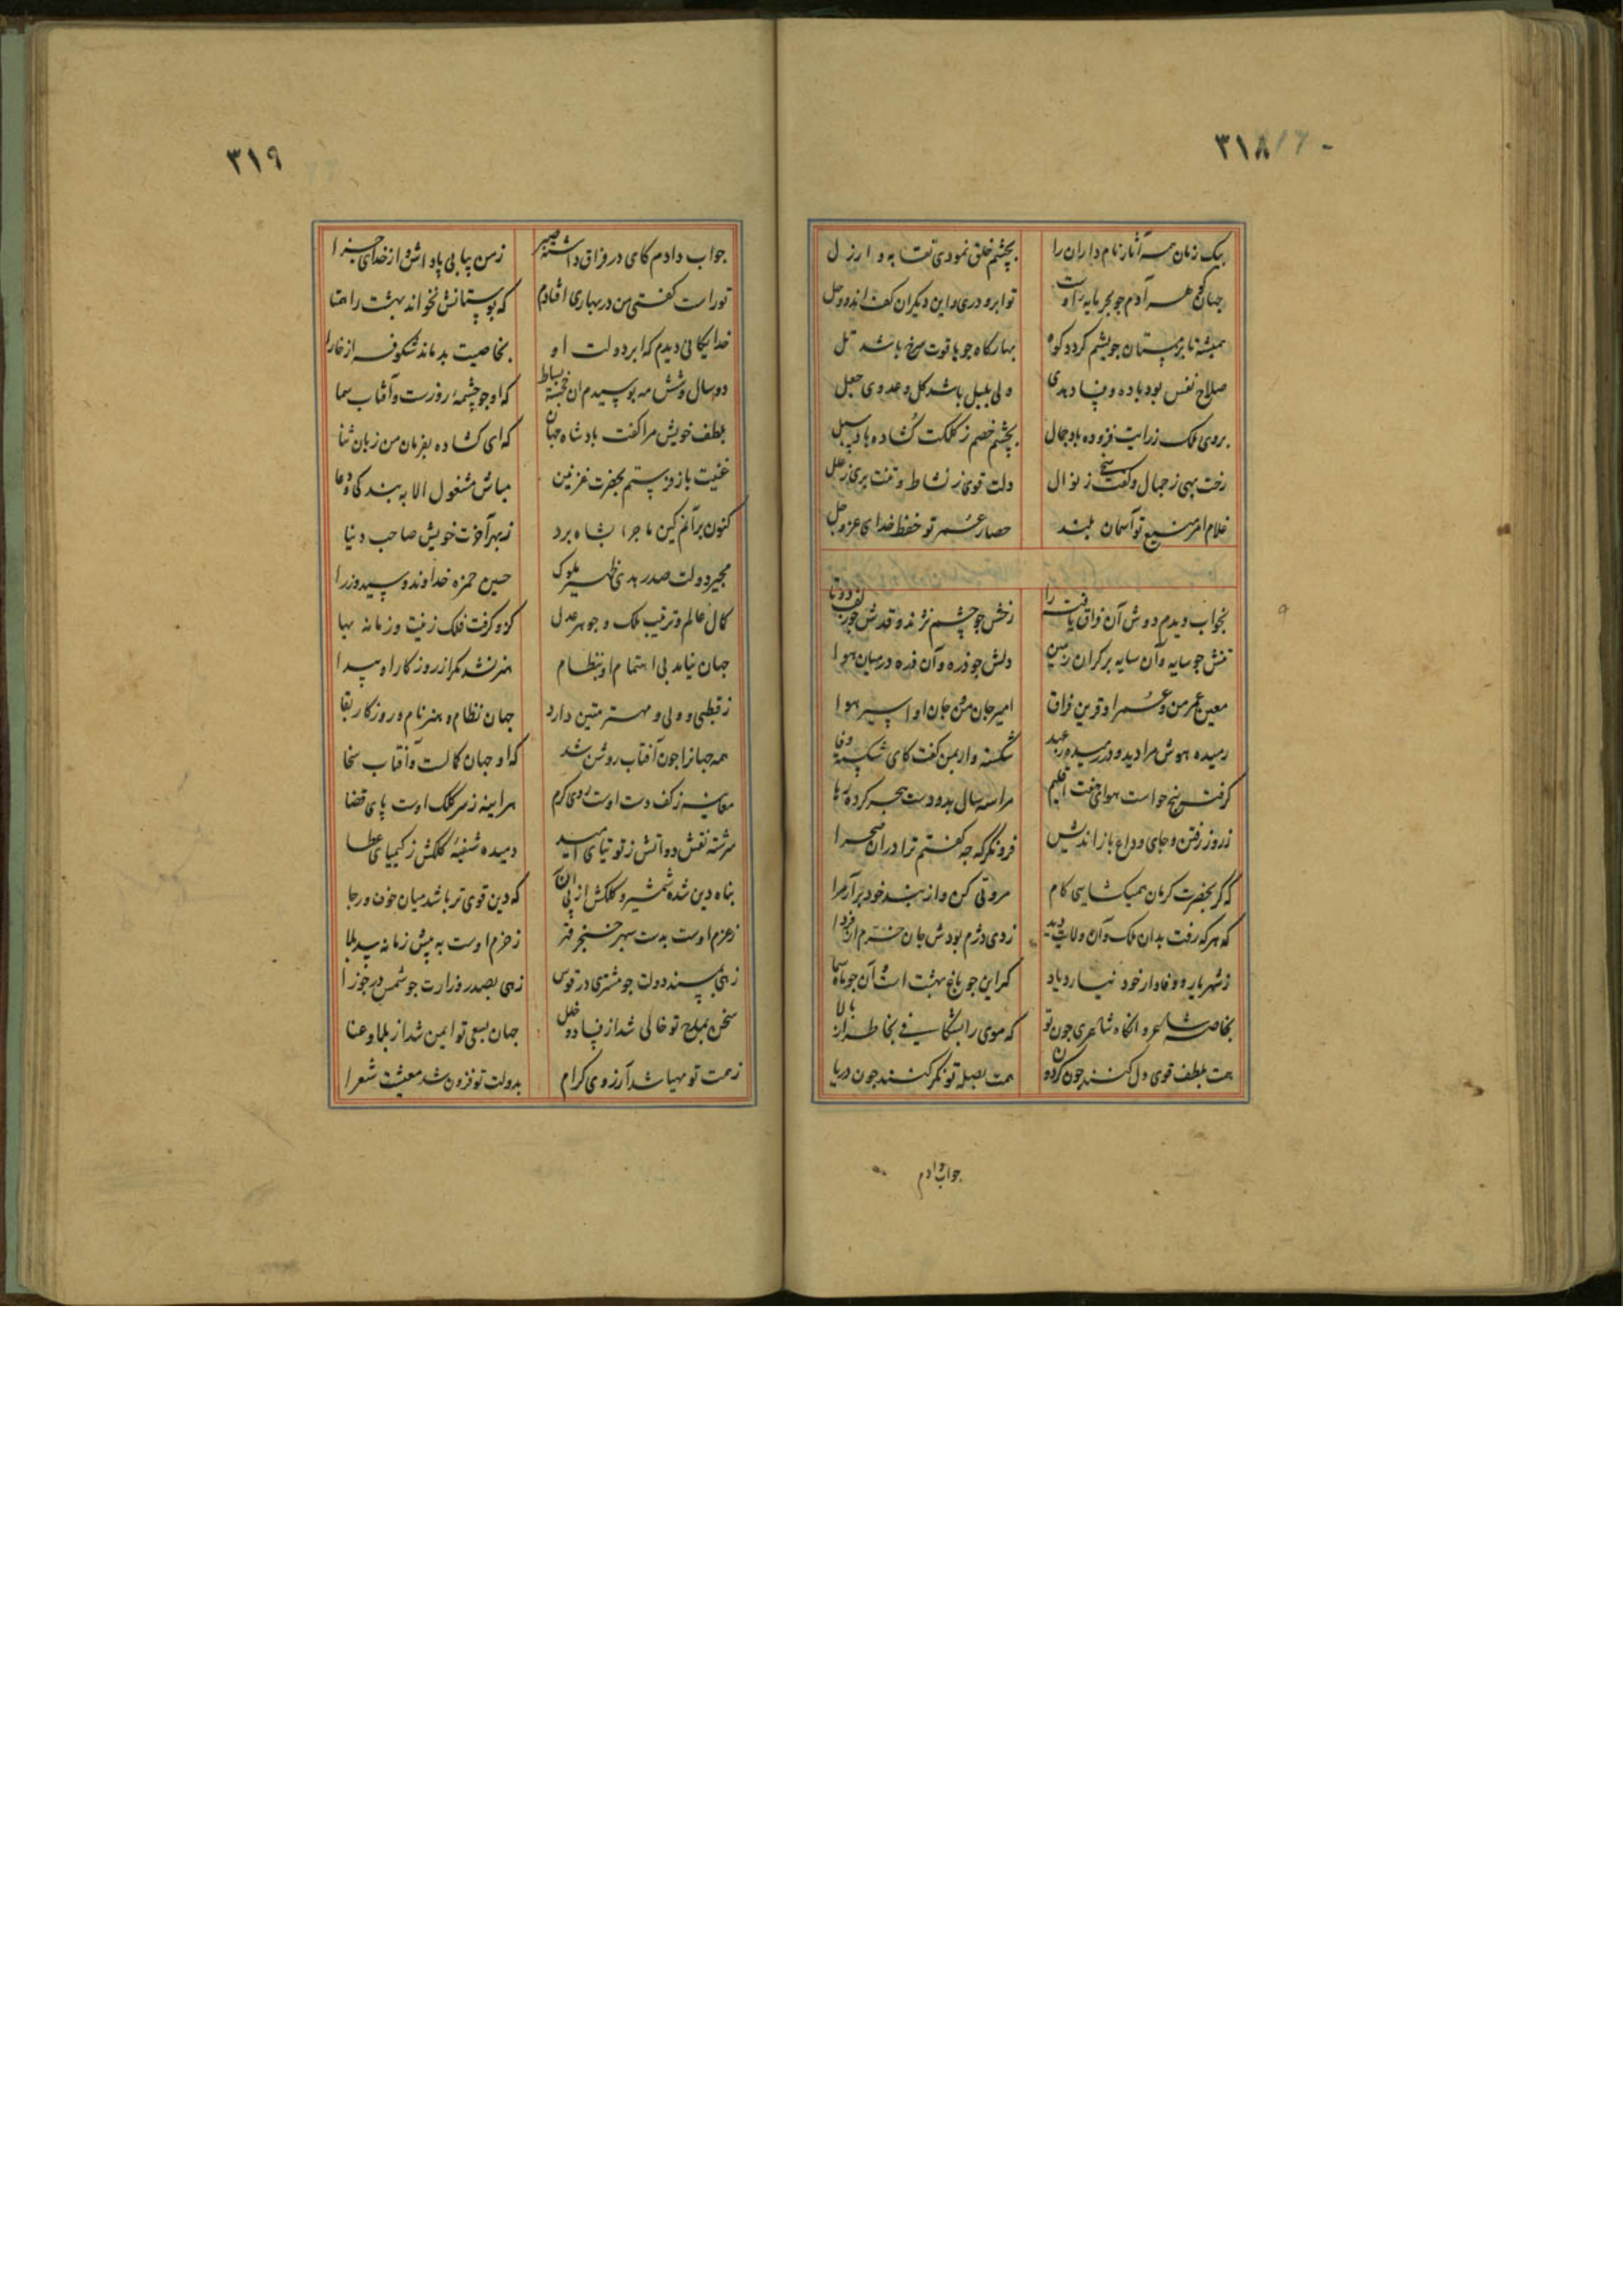 ۳۱۸
بیک زمان همه آثار نام داران را بچشم خلق نمودی نقایه و ارزل
جهان همه آدم چو بحر مایه تو ابر و دری و این دیگران کف اند و وحل
همیشه تا بزمستان چو یشم گردد کوه بهارگاه چو یاقوت سرخ باشد تل
صلاح نفس بود باده و فساد بدی ولی بلبل باشد گل و عدوی جعل
بروی ملک ز رایت فزوده باد جمال بچشم خصم ز کلکت گشاده باد سبل
رخت بهی ز جمال و کفت سخی ز نوال دلت قوی ز نشاط و تنت بری ز علل
غلام امر منیع تو آسمان بلند حصار عمر تو حفظ خدای عز و جل
بخواب دیدم دوش آن فراق یافته را رخش چو چشم نژند و قدش چو زلف دوتا
تنش چو سایه و آن سایه بر کران زمین دلش چو ذره و آن ذره در میان هوا
معین عمر من و عمر او قرین فراق امیر جان من و جان او اسیر هوا
رمیده هوش مرا دید و در رسیده بعهد شکسته وار بمن گفت کای شکسته وفا
گرفت پنج حواست هوای هفت اقلیم مرا سه سال بدو دست هجر کرده رها
ز روز رفتن و جای وداع باز اندیش فرو نگر که چه گفتم ترا در آن صحرا
که گر بحضرت کرمان همیکشایی کام مروتی کن و از بند خود برآر مرا
که هر که رفت بدان ملک و آن ولایت دید ز دی دژم بودش جان خرم از فردا
ز شهریار و وفادار خود نیارد یاد کز این چو باغ بهشت است و آن چو ماه سما
بخاصه شاعر و انگاه شاعری چون تو که موی را بشکافی بخاطر از بالا
همت بلطف قوی دل کنند چون گردون همت بصله توانگر کنند چون دریا
جواب دادم
۳۱۹
جواب دادم کای در فراق داشته صبر ز من بیابی پاداش و از خدای جزا
تو راست گفتی من در بهاری افتادم که بوستانش نخواند بهشت را همتا
خدایگانی دیدم که ابر دولت او بخاصیت بدماند شکوفه از خارا
دو سال و شش مه بوسیدم آن خجسته بساط که او چو چشمهٔ روزست و آفتاب سما
بلطف خویش مرا گفت پادشاه جهان که ای گشاده بفرمان من زبان ثنا
غنیت باز فرستم بحضرت غزنین مباش مشغول الا به بندگی و دعا
کنون برآنم کین ماجرا بشاه برد ز بهر آخرت خویش صاحب دنیا
مجیر دولت صدر هدی ظهیر ملوک حسین حمزه خداوند و سید وزرا
کمال عالم و ترتیب ملک و جوهر عدل کزو گرفت فلک زینت و زمانه بها
جهان نیامد بی اهتمام او بنظام هنر نشد مگر از روزگار او پیدا
ز قبطی و ولی و مهتر متین دارد جهان نظام و هنر نام و روزگار بقا
همه جهانرا چون آفتاب روشن شد که او جهان کمالست و آفتاب سخا
معاینه ز کف دست اوست روی کرم هر آینه ز سر کلک اوست پای قضا
سرشته نقش دواتش ز توتیای امید دمیده شفیهٔ کلکش ز کیمیای عطا
پناه دین شده شمشیر و کلکش از پی آن که دین قوی تر باشد میان خوف و رجا
ز عزم اوست بدست سپهر خنجر قهر ز حزم اوست به پیش زمانه سد بلا
زهی بمسند دولت چو مشتری در قوس زهی بصدر وزارت چو شمس در جوزا
سخن بمدح تو خالی شد از فساد و خلل جهان بسعی تو ایمن شد از بلا و عنا
ز همت تو مهیا شد آرزوی کرام بدولت تو فزون شد معیشت شعرا